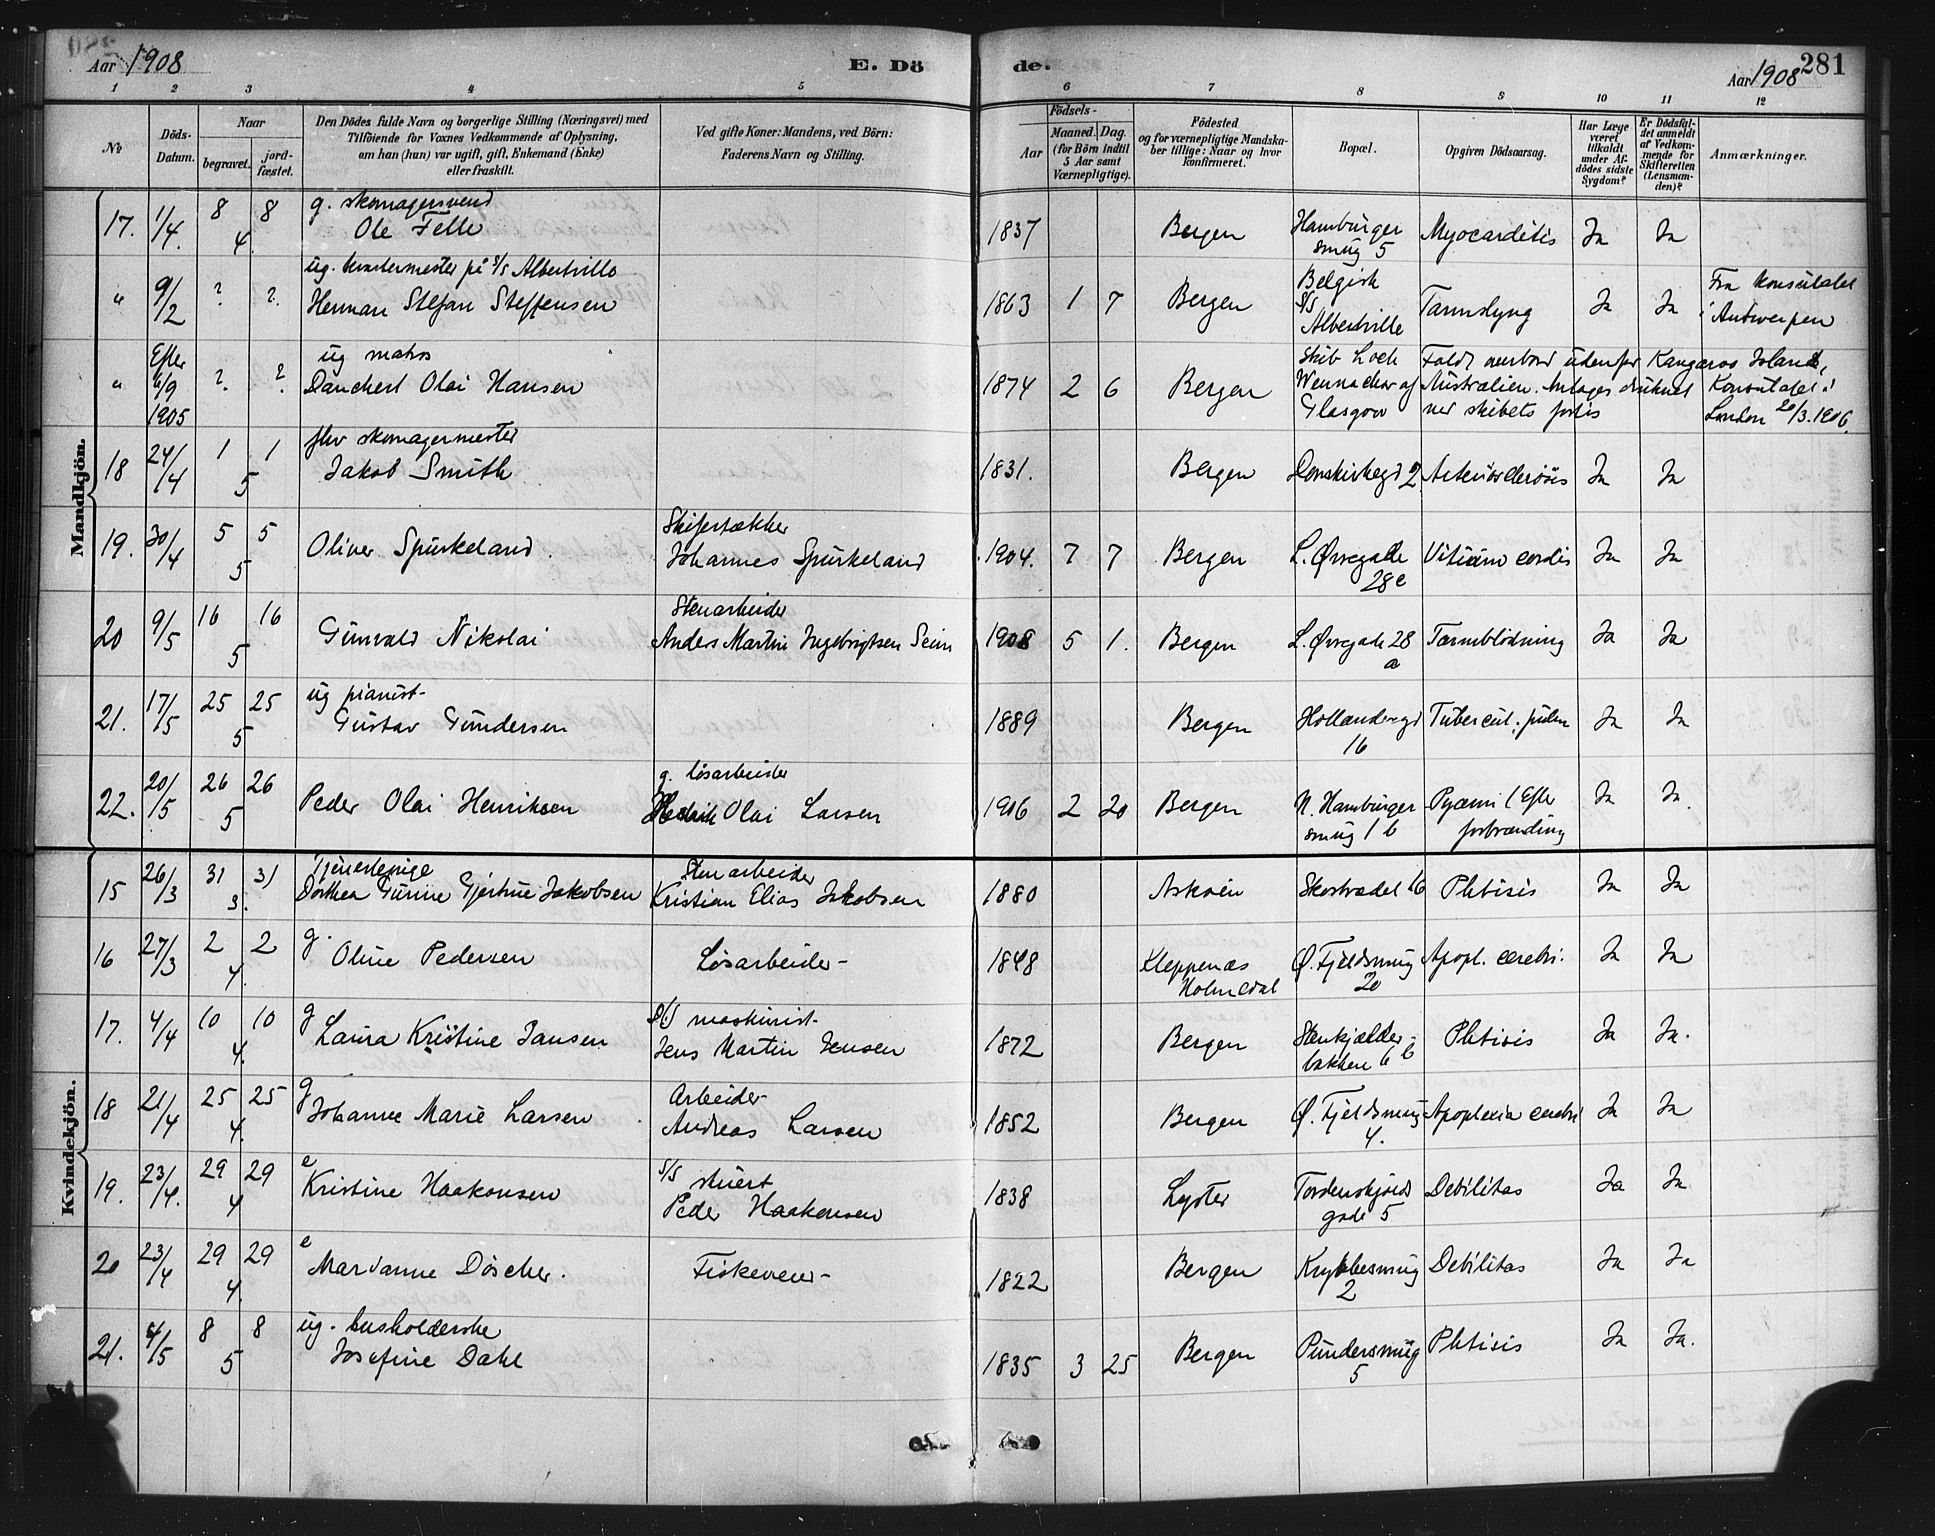 Aar 1908
E. Dö
de.
Aar 1908
281
1 2 3 4 5 6 7 8 9 10 11 12
No
Döds-Datum.
Naar
begravet.
jord-fæstet.
Den Dödes fulde Navn og borgerlige Stilling (Næringsvei) med
Tilföiende for Voxnes Vedkommende af Oplysning,
om han (hun) var ugift, gift, Enkemand (Enke)
eller fraskilt.
Ved gifte Koner: Mandens, ved Börn:
Faderens Navn og Stilling.
Födsels-
Aar
Maaned. Dag.
(for Börn indtil
5 Aar samt
Værnepligtige).
Födested
og for værnepligtige Mandska-
ber tillige: Naar og hvor
konfirmeret.
Bopæl.
Opgiven Dödsaarsag.
Har Læge
været
tilkaldt
under Af-
dödes sidste
Sygdom?
Er Dödsfal-
det anmeldt
af Vedkom-
mende for
Skifteretten
(Lensman-
den)?
Anmærkninger.
Mandkjön.
17. 1/4. 8 8 4. g. skomagersvend Ole Felle 1837 Bergen Hamburger smug 5 Myocarditis Ja Ja
" 9/2 ? ? ug. kvartermester på S/S Albertville Herman Stefan Steffensen 1863 1 7 Bergen Belgisk S/S Albertville Tarmslyng Ja Ja Fra Konsulatet i Antwerpen
" Efter 6/9 1905 ? ? ug matros Danckert Olai Hansen 1874 2 6 Bergen Skib Loch Vennachar af Glasgow Faldt overbord udenfor Kangaroo Island, Australien. Antages druknet ved skibets forlis Konsulatet i London 20/3.1906.
18 24/4 1 1 5 skomagermester Jakob Smith 1831. Bergen Domkirkegd 2 Arteriosclerosis Ja Ja
19. 30/4 5 5 5 Oliver Spurkeland. Skifertækker Johannes Spurkeland 1904. 7 7 Bergen L. Øvregade 28c Vitium cordis Ja Ja
20 9/5 16 16 5 Gunvald Nikolai Stenarbeider Anders Martin Ingebrigtsen Seim 1908 5 1. Bergen L. Øvregade 28 a Tarmblödning Ja Ja
21. 17/5 25 25 5 ug pianist- Gustav Gundersen 1889 Bergen Hollendergd 16 Tubercul. pulm Ja Ja
22. 20/5 26 26 5 Peder Olai Henriksen g. løsarbeider Hedrik Olai Larsen 1906 2 20 Bergen N. Hamburger smug 1 b Pyæmi (Efter forbrænding Ja Ja.
Kvindekjön.
15 26/3 31 31 3. Tjenestepige Dorthea Gurine Gjertine Jakobsen Stenarbeider Kristian Elias Jakobsen 1880 Askøen Skostrædet 16 Phtisis Ja Ja
16 27/3 2 2 4. g. Oline Pedersen Løsarbeider- 1848 Kleppenæs Holmedal Ø. Fjeldsmug 20 Apopl. cerebri. Ja Ja
17. 4/4 10 10 4. g Laura Kristine Jansen S/S maskinist- Jens Martin Jensen 1872 Bergen Stenkjelder-bakken 6 b Phtisis Ja Ja.
18 21/4 25 25 4. g Johanne Marie Larsen Arbeider- Andreas Larsen 1852 Bergen Ø. Fjeldsmug 4. Apoplexia cerebri Ja Ja
19. 23/4. 29 29 4 e Kristine Haakonsen S/S stuert Peder Haakonsen 1838 Lyster Tordenskjolds gade 5 Debilitas Ja Ja
20 23/4 29 29 4. e Marianne Döscher. Fiskeveier- 1822 Bergen Krybbesmug 2 Debilitas Ja Ja
21. 4/5 8 8 5 ug. husholderske Josefine Dahl 1835 3 25 Bergen Pundersmug 5 Phtisis Ja Ja.